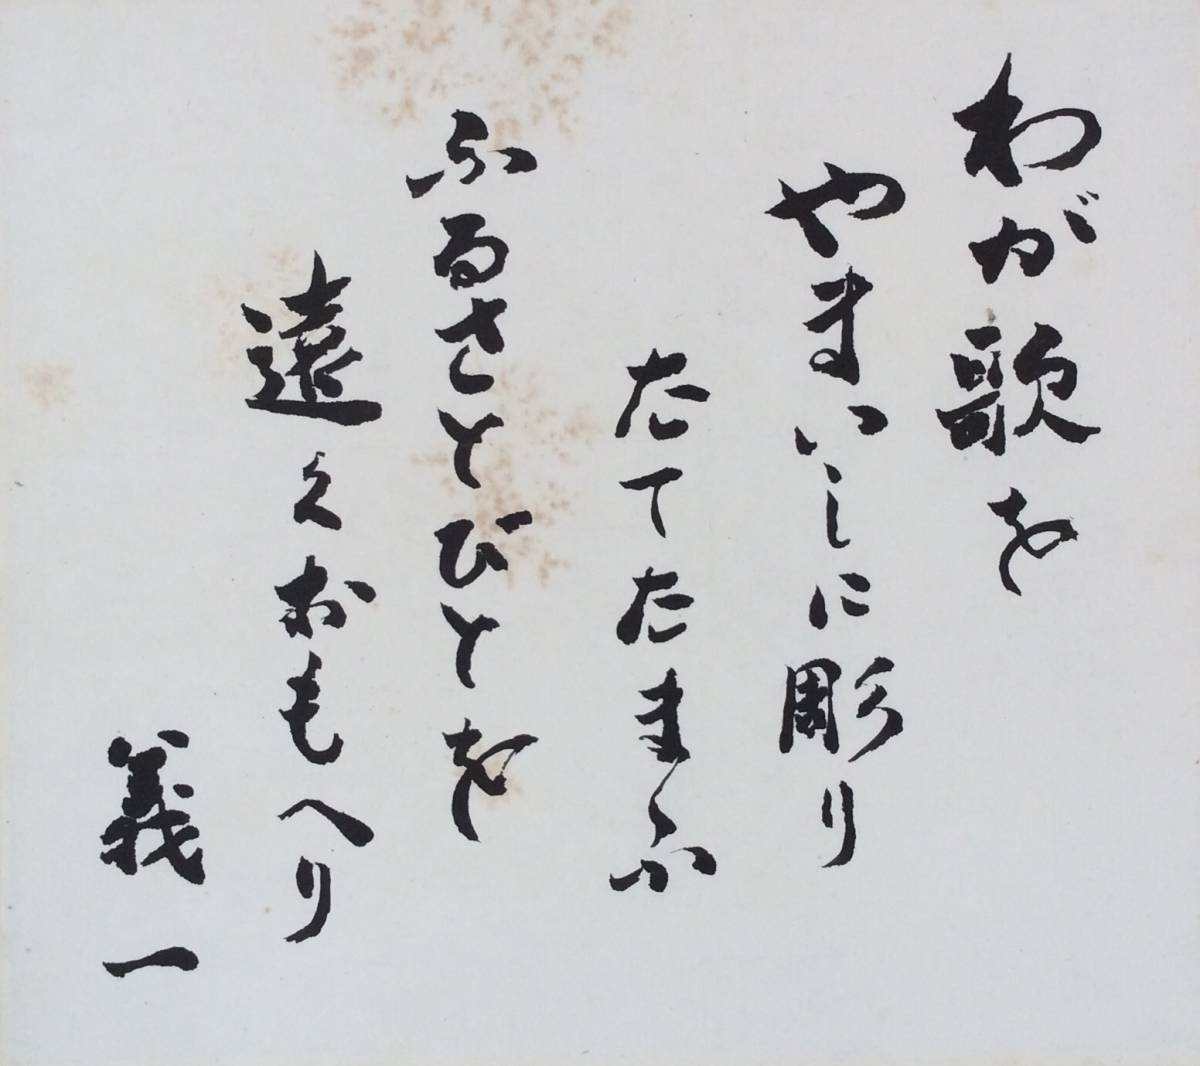 わが歌を
やまいしに彫り
たてたまふ
ふるさとびとを
遠くおもへり
義一